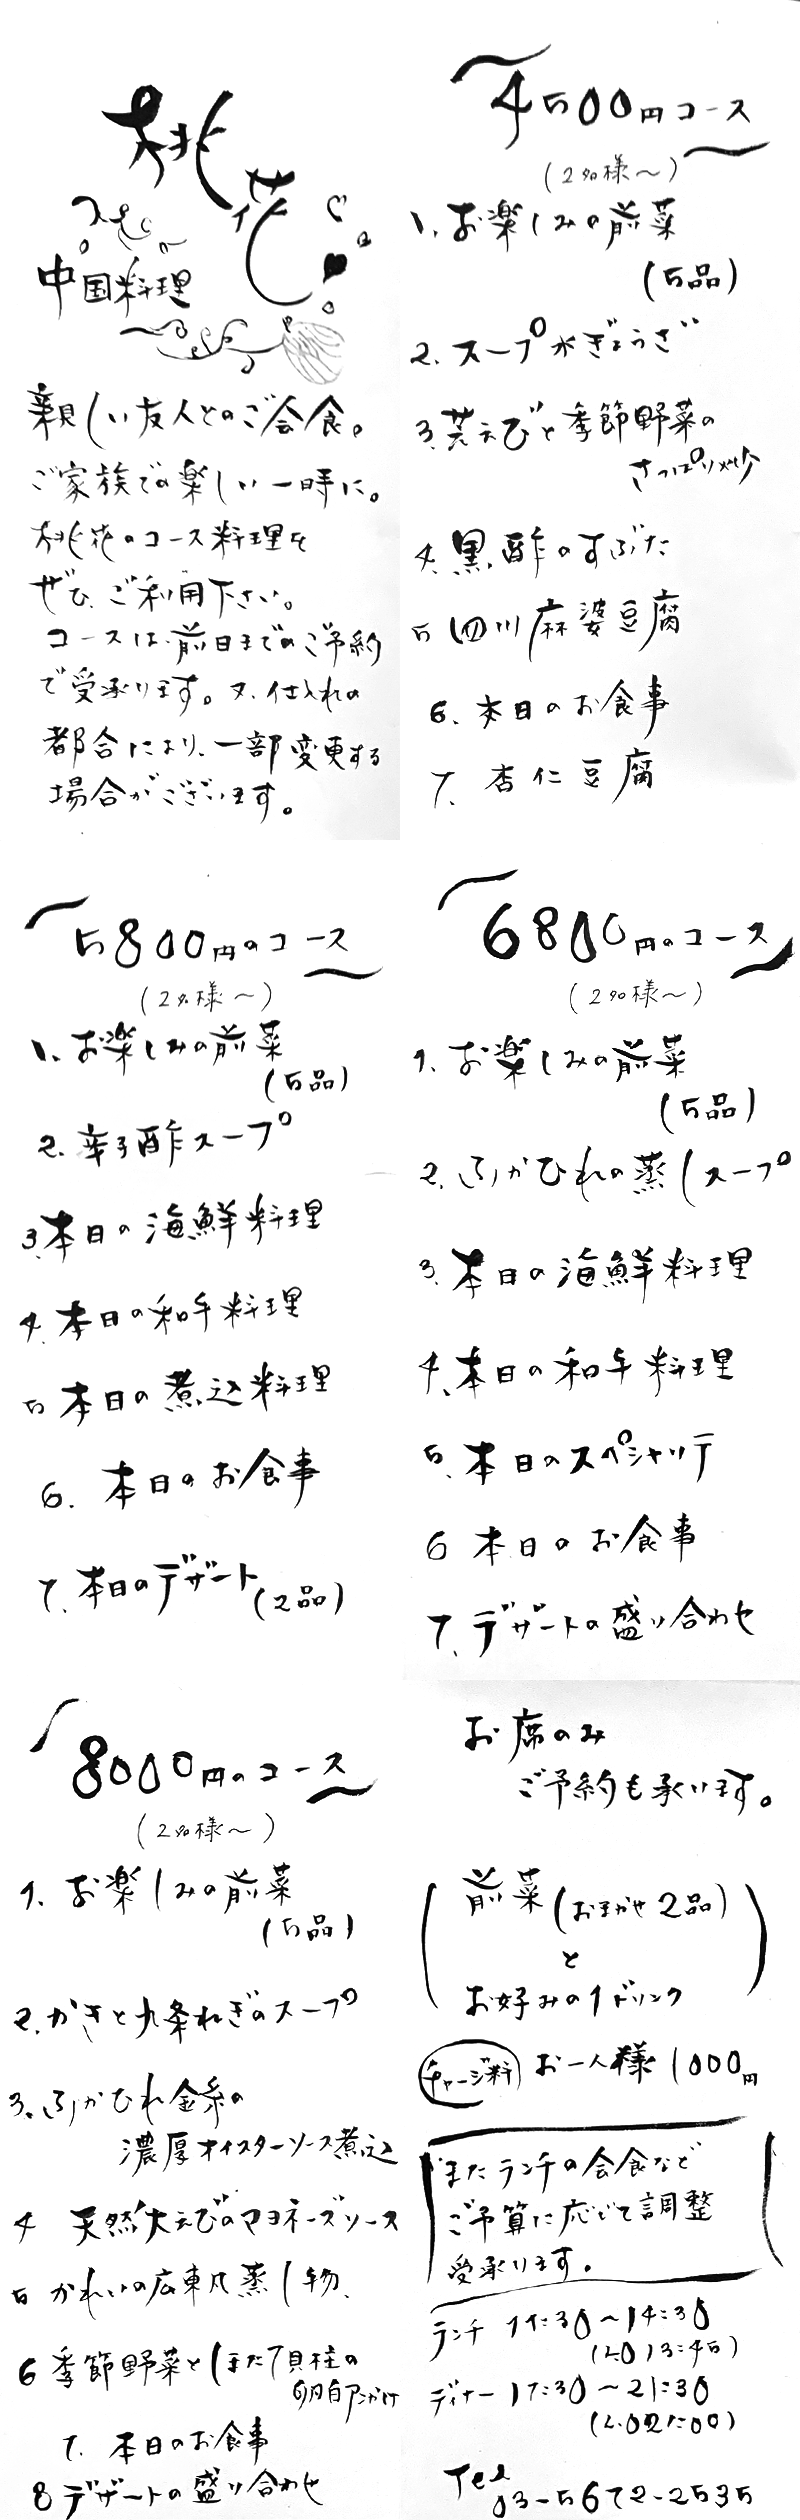 桃花
中国料理
親しい友人とのご会食。
ご家族での楽しい一時に。
桃花のコース料理を
ぜひ、ご利用下さい。
コースは前日までのご予約
で受承ります。又、仕入れの
都合により、一部変更する
場合がございます。
4500円コース
(2名様〜)
1、お楽しみの前菜
(5品)
2、スープ水ぎょうざ
3、芝えびと季節野菜の
さっぱり炒め
4、黒酢のすぶた
5 四川麻婆豆腐
6、本日のお食事
7、杏仁豆腐
5800円のコース
(2名様〜)
1、お楽しみの前菜
(5品)
2、辛子酢スープ
3、本日の海鮮料理
4、本日の和牛料理
5 本日の煮込料理
6、本日のお食事
7、本日のデザート(2品)
6800円のコース
(2名様〜)
1、お楽しみの前菜
(5品)
2、ふかひれの蒸しスープ
3、本日の海鮮料理
4、本日の和牛料理
5、本日のスペシャリテ
6 本日のお食事
7、デザートの盛り合わせ
8000円のコース
(2名様〜)
1、お楽しみの前菜
(5品)
2、かきと九条ねぎのスープ
3、ふかひれ金糸の
濃厚オイスターソース煮込
4 天然大えびのマヨネーズソース
5 かれいの広東風蒸し物、
6 季節野菜とほたて貝柱の
卵白アンかけ
7、本日のお食事
8 デザートの盛り合わせ
お席のみ
ご予約も承ります。
前菜(おまかせ2品)
と
お好みの1ドリンク
チャージ料 お一人様1000円
またランチの会食など
ご予算に応じて調整
受承ります。
ランチ 11:30〜14:30
(L.O13:45)
ディナー17:30〜21:30
(L.O21:00)
Tel
03-5672-2535